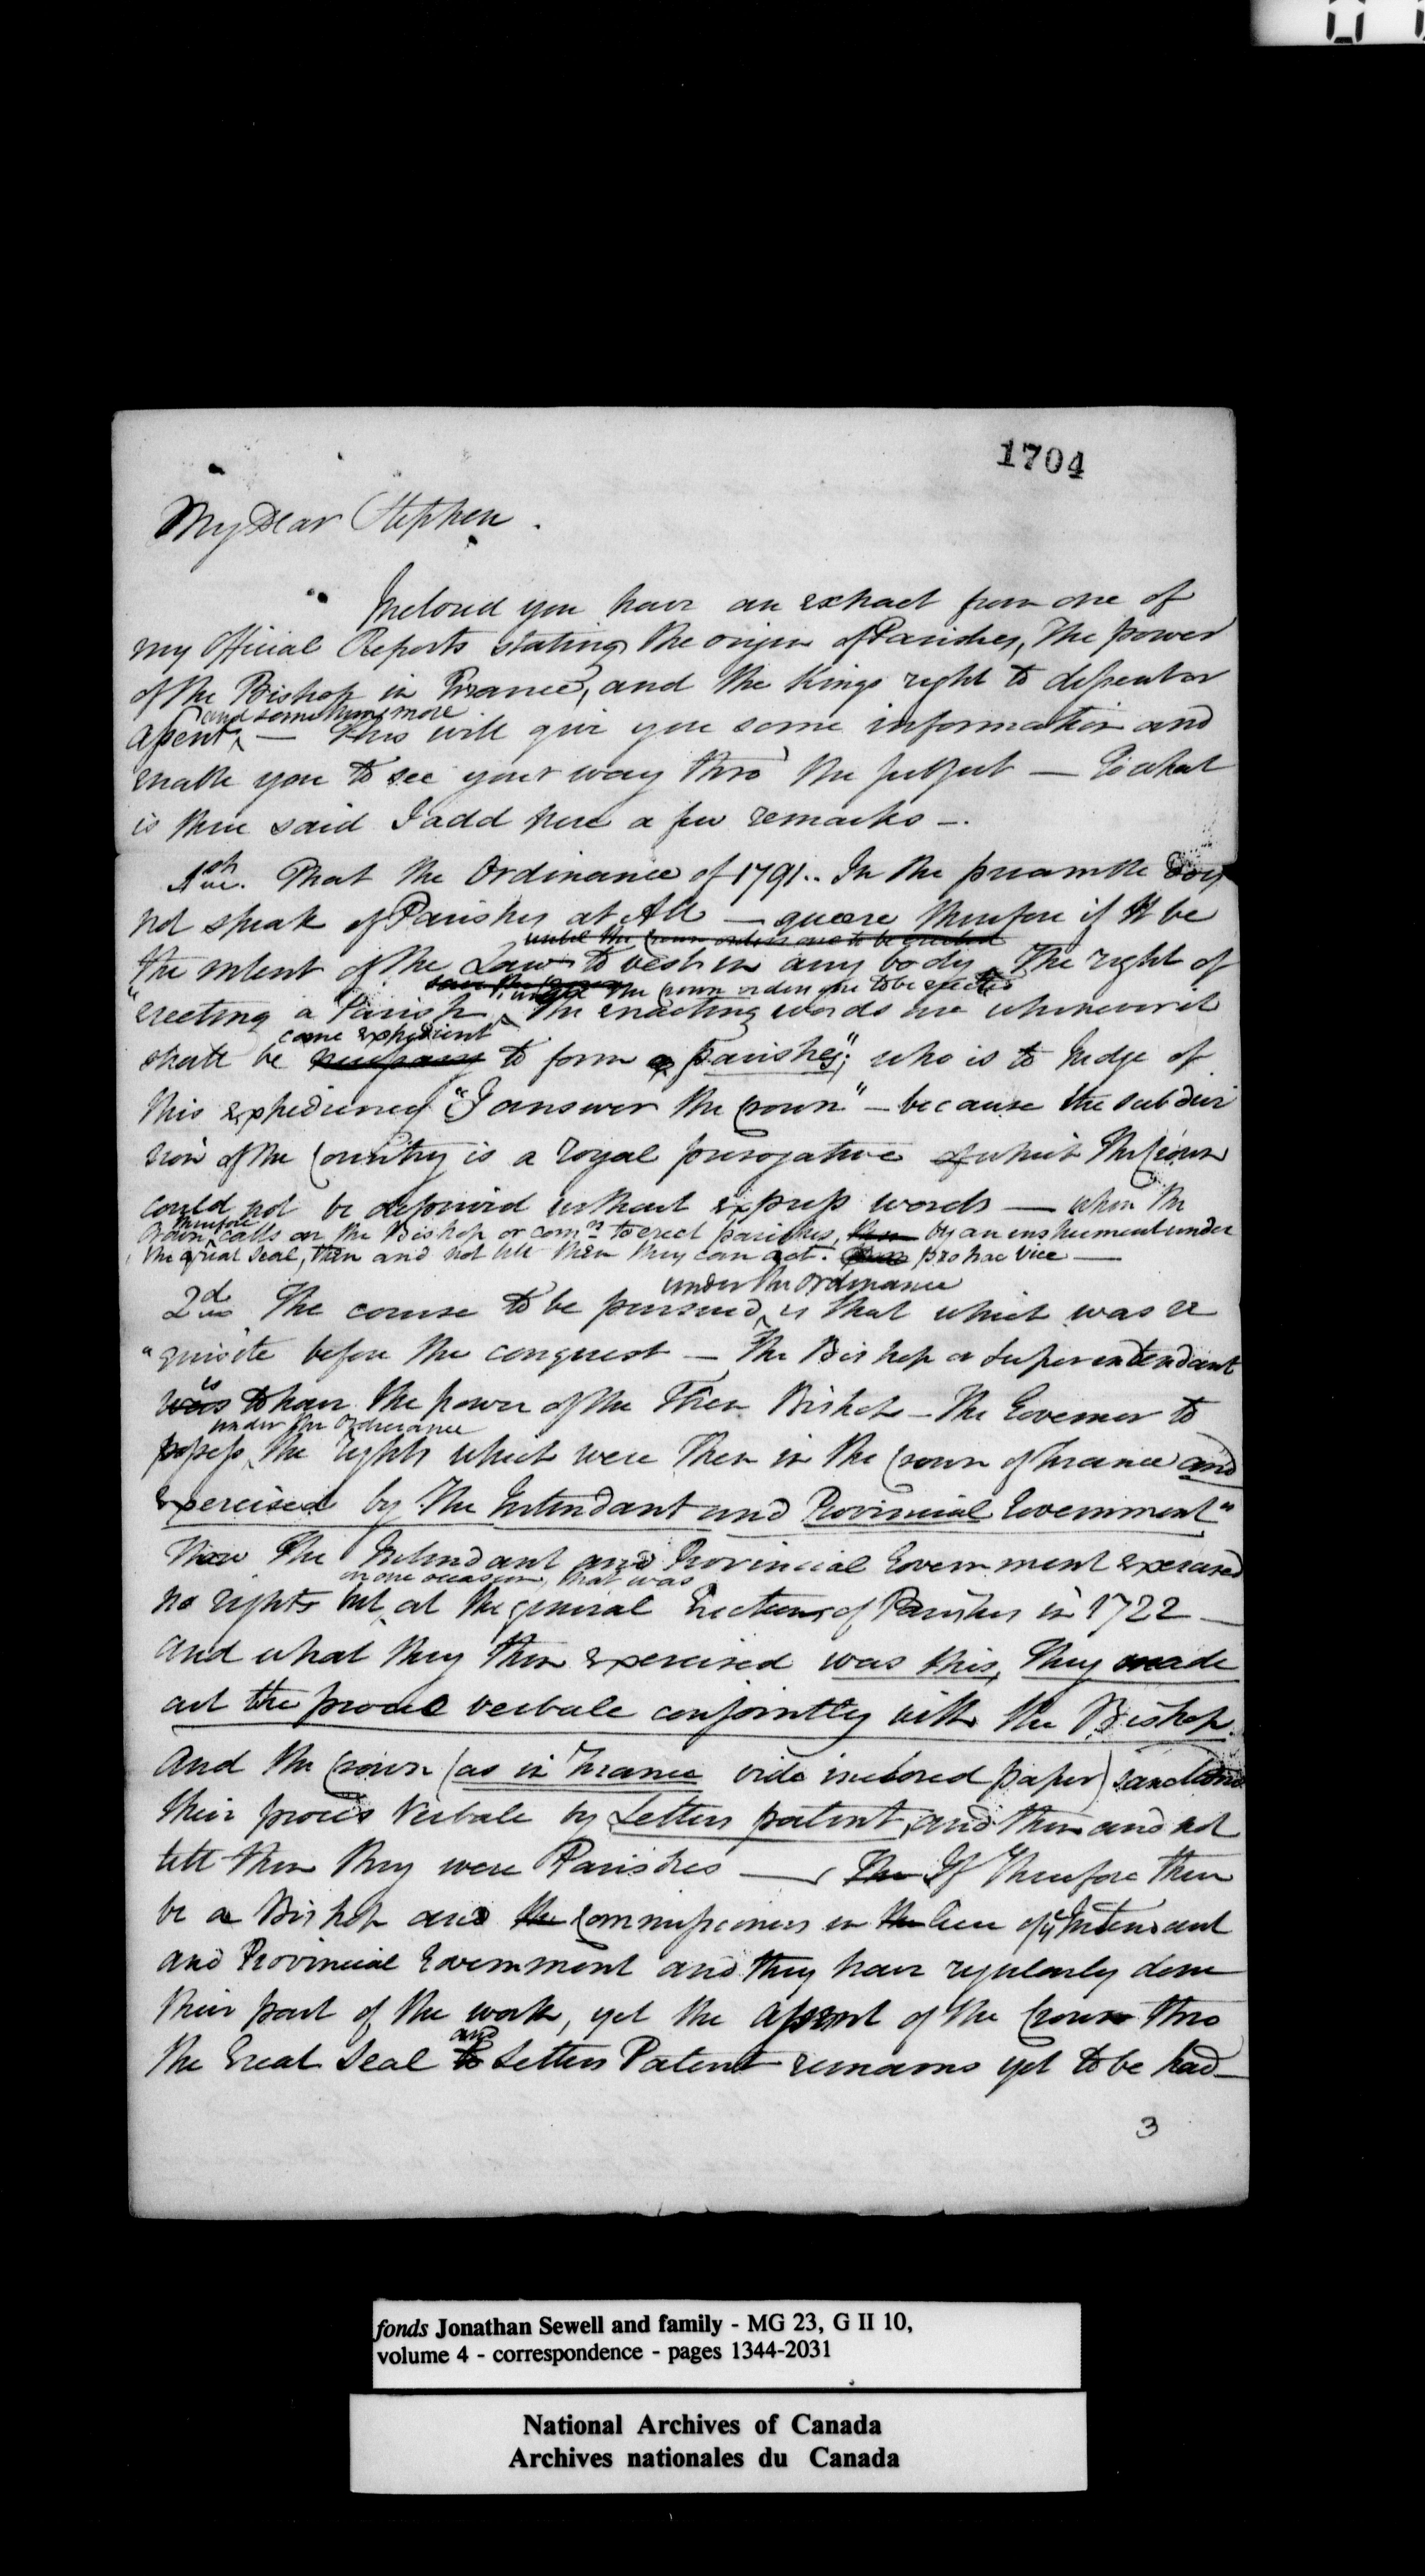 1704
My Dear Stephen.
Inclosed you have an extract from one of
my Official Reports stating the origin of Parishes, The power
of the Bishop in France, and the Kings right to dissent or
and something more
assent — This will give you some information and
enable you to see your way thro' the subject — To what
is there said I add here a few remarks —.
1st. That the Ordinance of 1791.. In the preamble Does
not speak of Parishes at All — quære therefore if It be
until the Crown orders one to be erected
the intent of the Law to vest in any body The right of
unless the Crown orders one to be erected
erecting a Parish, The enacting words are "whenever it
come expedient
shall be necessary to form a Parishes"; who is to Judge of
this expediency "I answer the Crown" — because the subdivi
sion of the Country is a royal prerogative of which the Crown
could not be deprived without express words — when the
therefore
Crown calls on the Bishop or Comrs to erect parishes, then by an instrument under
the great Seal, then and not till then they can act. pro hac vice —
under the Ordinance
2d The course to be pursued is that which was re
"quisite before the conquest — The Bishop or Superintendant
is
was to have the power of the Then Bishop — The Governor to
under the Ordinance
possess the rights which were then in the Crown of France and
exercised by The Intendant and Provincial Government"
Now The Intendant and Provincial Government exercised
on one occasion, that was
no rights but at the general Erections of Parishes in 1722 —
and what they then exercised was this, they made
out the procès verbale conjointly with the Bishop.
And the Crown (as in France vide inclosed paper) sanctioned
their procès Verbale by Letters patent, and then and not
till then they were Parishes — The If Therefore there
be a Bishop and the Commissioners in the lieu of ye Intendant
and Provincial Government and they have regularly done
their part of the work, yet the assent of the Crown thro
and
the Great Seal to Letters Patent remains yet to be had —
3
fonds Jonathan Sewell and family - MG 23, G II 10,
volume 4 - correspondence - pages 1344-2031
National Archives of Canada
Archives nationales du Canada